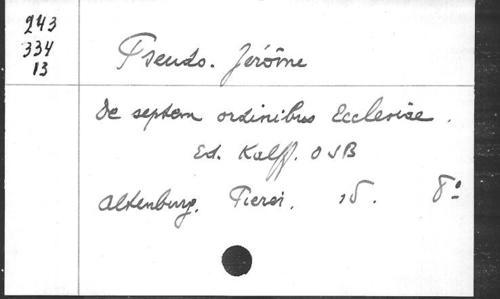 243
334
13
Pseudo. Jérôme
De septem ordinibus Ecclesiae.
Ed. Kalff. OSB
Altenburg. Pierer. 8°